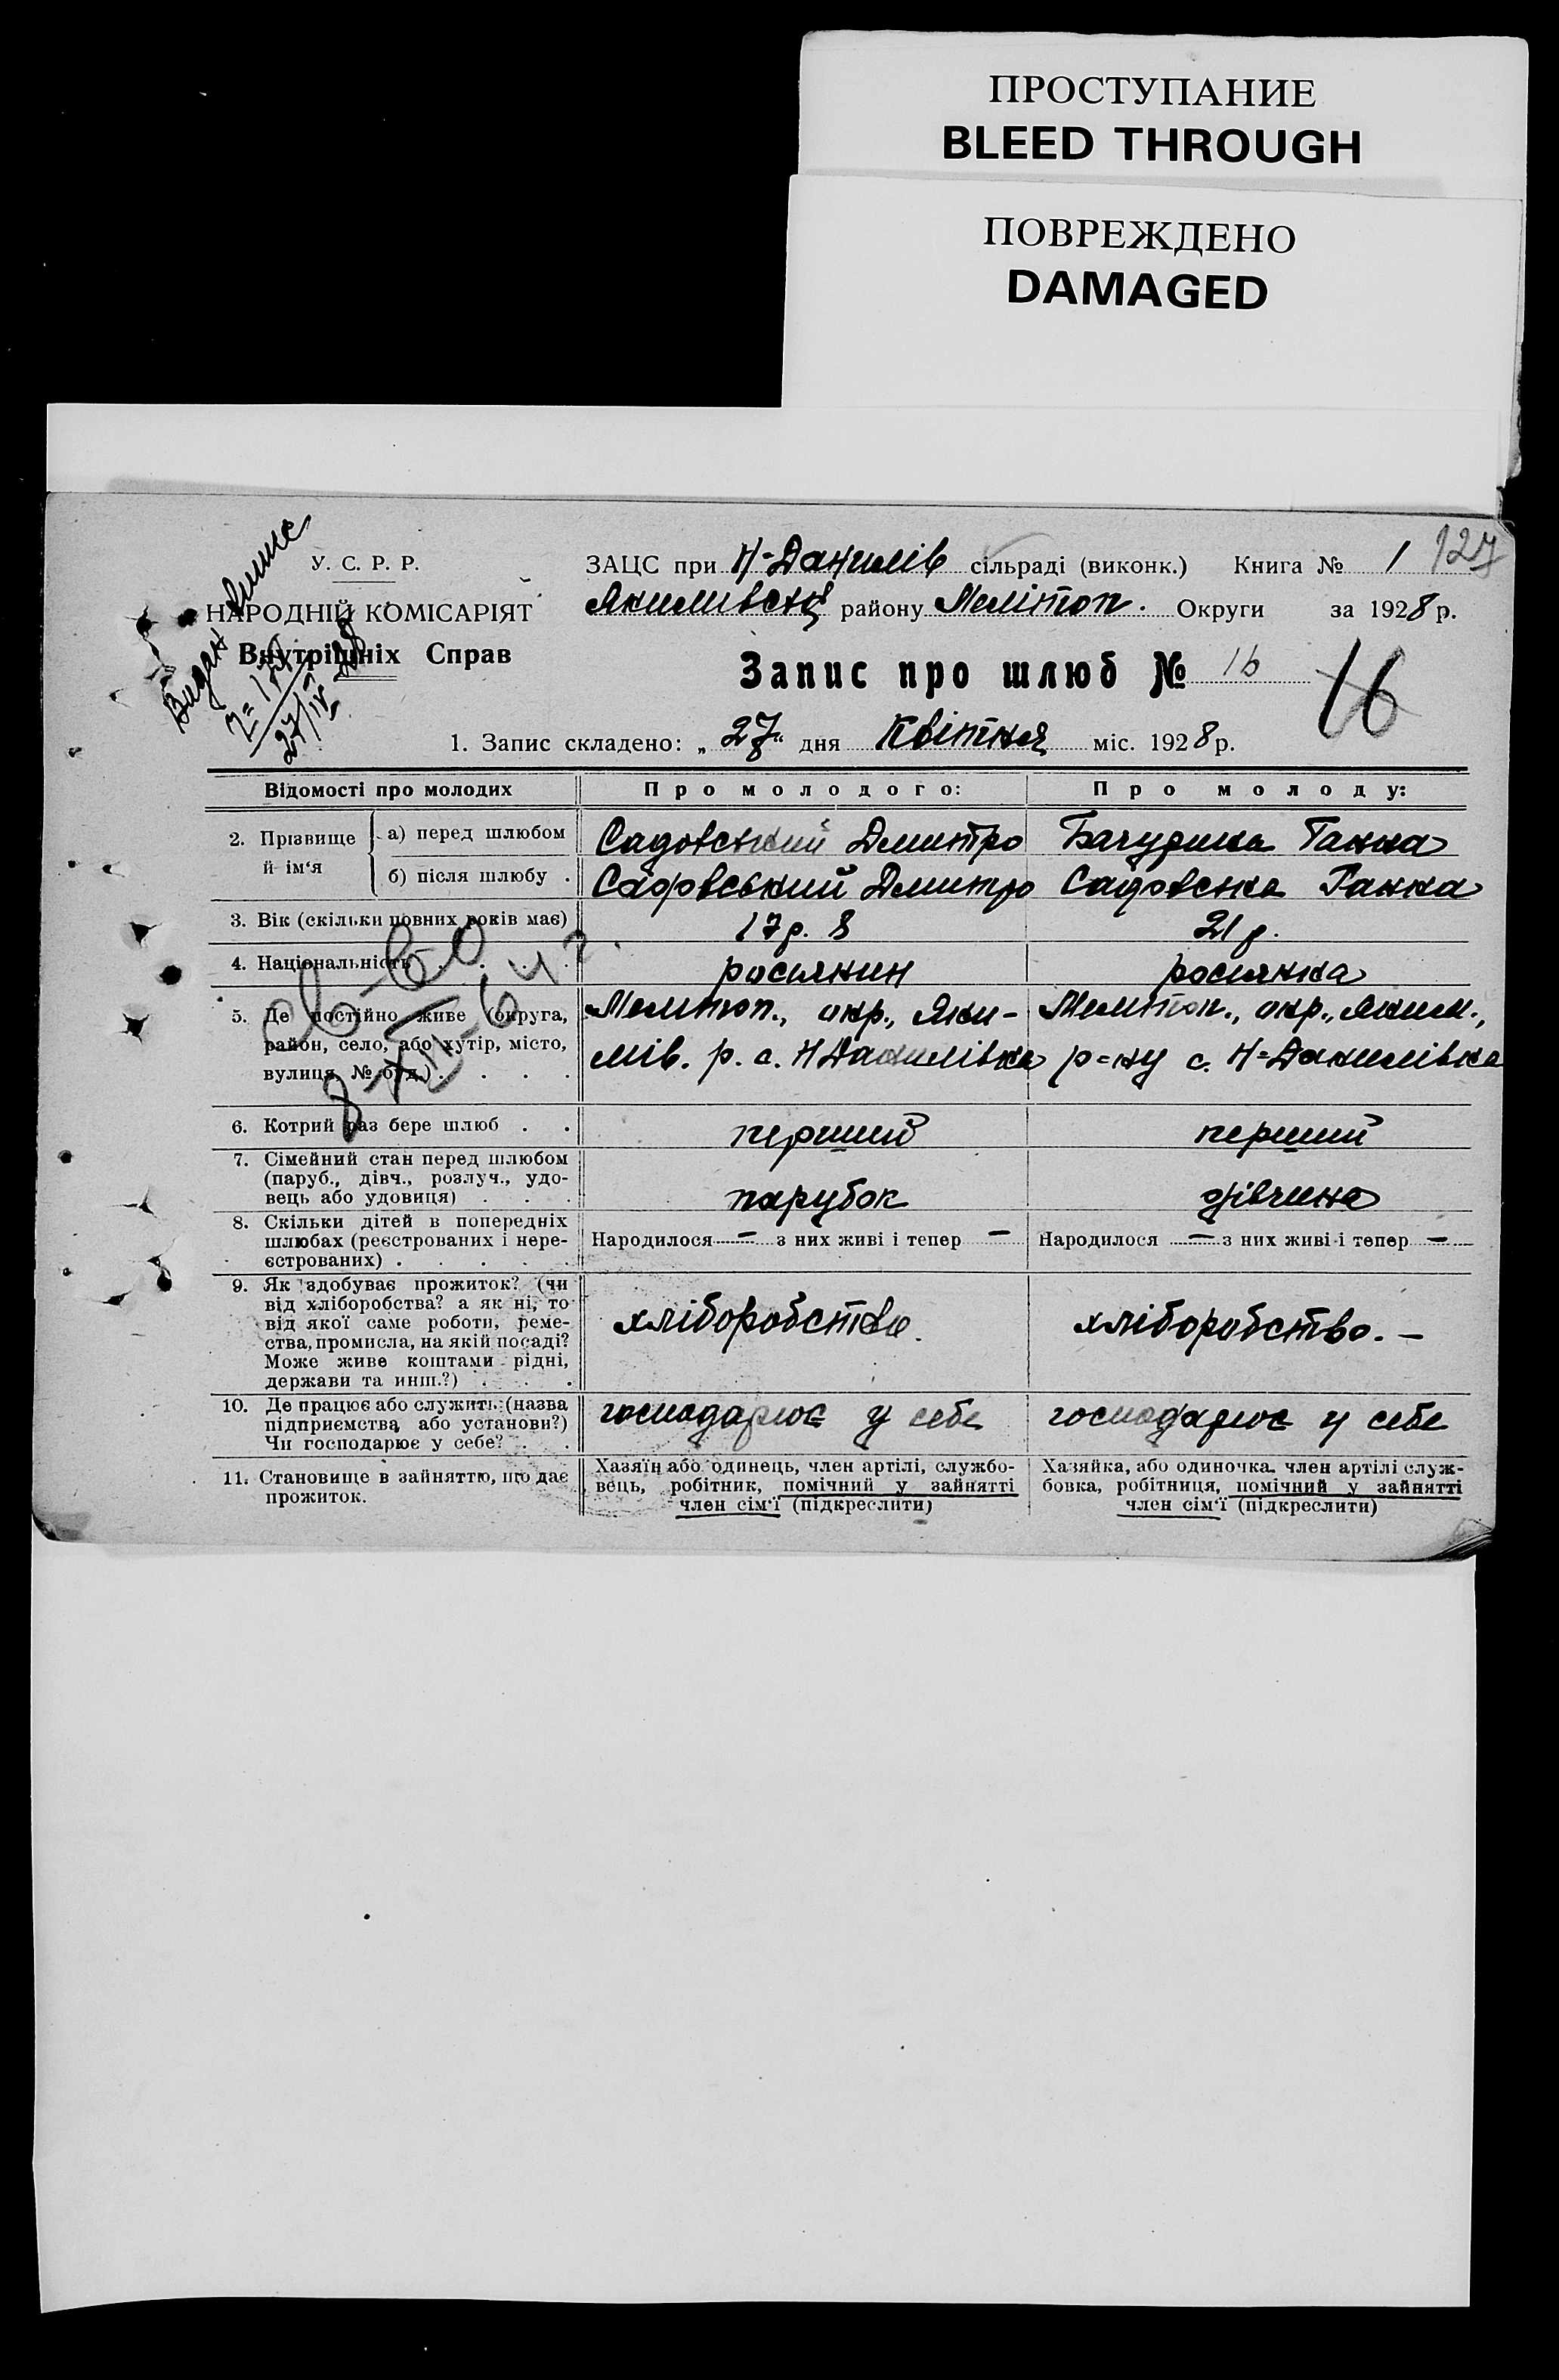 ПРОСТУПАНИЕ
BLEED THROUGH
ПОВРЕЖДЕНО
DAMAGED
127
У. С. Р. Р.
НАРОДНІЙ КОМІСАРІЯТ
Внутрішніх Справ
Видан
ЗАЦС при Н-Данилів сільраді (виконк.) Книга № 1
району Мелітоп. Округи за 1928 р.
Запис про шлюб № 16
16
1. Запис складено: „27" дня Квітня міс. 1928 р.
Відомості про молодих Про молодого: Про молоду:
2. Прізвище й ім'я
а) перед шлюбом Садовський Дмитро Бачурина Ганна
б) після шлюбу . Садовський Дмитро Садовська Ганна
3. Вік (скільки повних років має) 17 р. 8 21 р.
4. Національність . . . . росиянин росиянка
5. Де постійно живе (округа, район, село, або хутір, місто, вулиця, № буд.) . . . . .
Мелітоп., окр., Яки-
мів. р. с. Н Данилівка
Мелітоп., окр., Яким.,
р=ну с. Н=Данилівка
6. Котрий раз бере шлюб . . перший перший
7. Сімейний стан перед шлюбом
(паруб., дівч., розлуч., удо-
вець або удовиця) . . . парубок дівчина
8. Скільки дітей в попередніх
шлюбах (реєстрованих і нере-
єстрованих) . . . . .
Народилося — з них живі і тепер — Народилося — з них живі і тепер —
9. Як здобуває прожиток? (чи
від хліборобства? а як ні, то
від якої саме роботи, реме-
ства, промисла, на якій посаді?
Може живе коштами рідні,
держави та инш.?) . . .
хліборобство. хліборобство. —
10. Де працює або служить: (назва
підприємства, або установи?)
Чи господарює у себе? . .
господарює у себе господарює у себе
11. Становище в зайняттю, що дає
прожиток.
Хазяїн або одинець, член артілі, службо-
вець, робітник, помічний у зайнятті
член сім'ї (підкреслити)
Хазяйка, або одиночка, член артілі служ-
бовка, робітниця, помічний у зайнятті
член сім'ї (підкреслити)